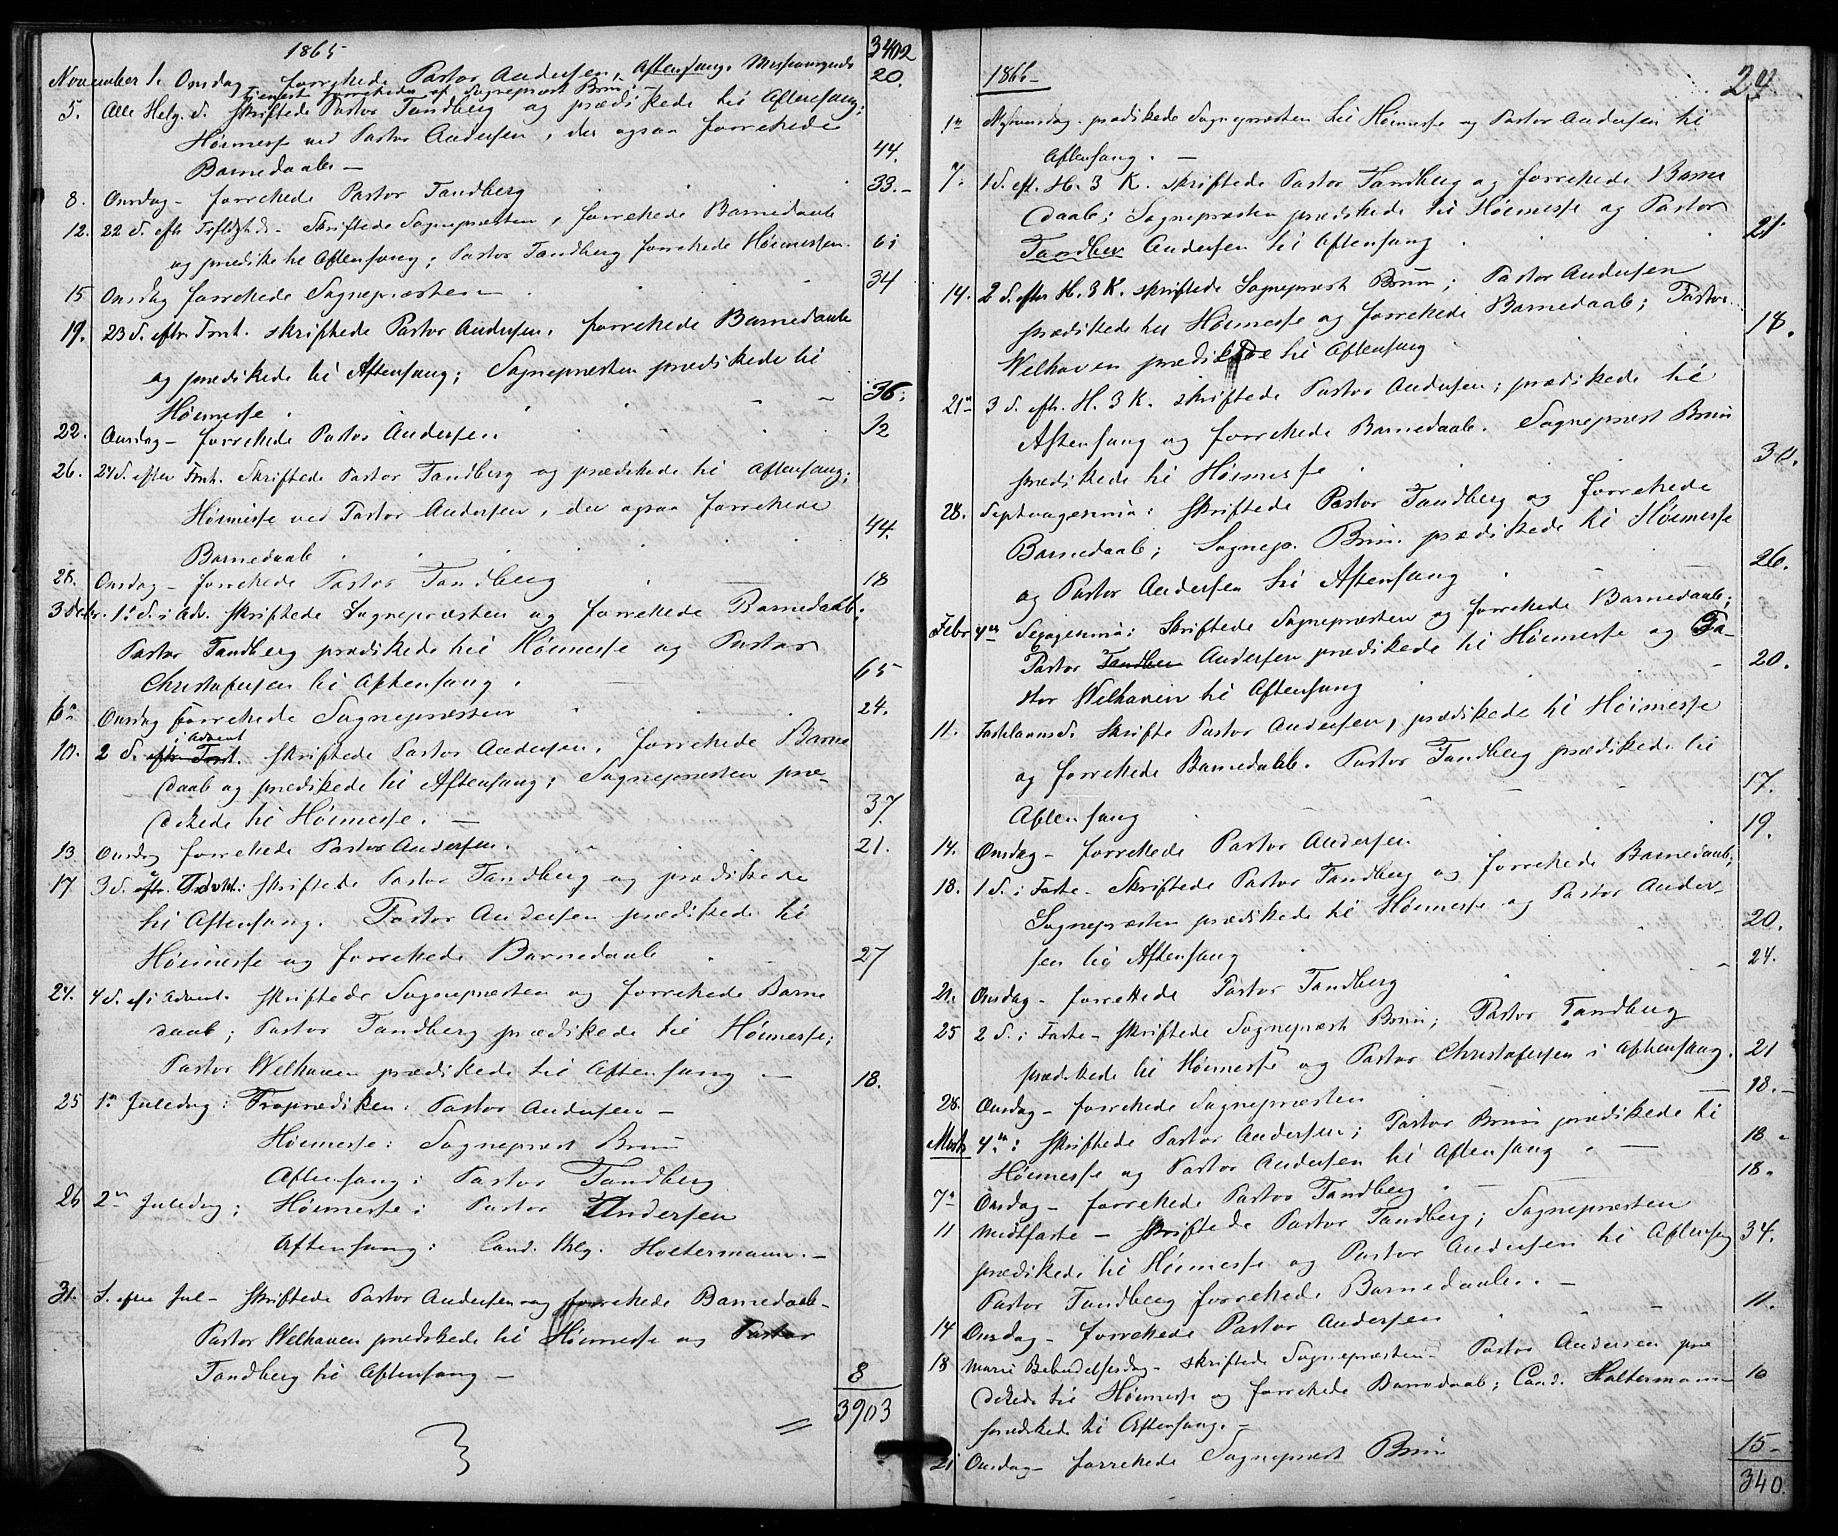 1865
3402
November 1. Onsdag forrettede Pastor Andersen, Aftensang. 20.
Tieneste forrettedes af Sognepræst Brun.
5. Alle Helg. S. skriftede Pastor Tandberg og prædikede til Aftensang;
Høimesse ved Pastor Andersen, der ogsaa forrettede
Barnedaab – 44.
8. Onsdag – forrettede Pastor Tandberg 33.–
12. 22 S. eftr Trfldghds – Skriftede Sognepræsten, forrettede Barnedaab
og prædike til Aftensang; Pastor Tandberg forrettede Høimessen. 61
15 Onsdag forrettede Sognepræsten 34
19. 23 S. eftr. Trnt. skriftede Pastor Andersen, forrettede Barnedaab
og prædikede til Aftensang; Sognepræsten prædikede til
Høimesse. 36.
22. Onsdag – forrettede Pastor Andersen. 12
26. 24 S. efter Trnt. Skriftede Pastor Tandberg og prædikede til Aftensang;
Høimesse ved Pastor Andersen, der ogsaa forrettede
Barnedaab 44.
28. Onsdag – forrettede Pastor Tandberg 18
3 Decbr. 1ste S. i Adv. skriftede Sognepræsten og forrettede Barnedaab.
Pastor Tandberg prædikede til Høimesse og Pastor
Christofersen til Aftensang. 65
6te Onsdag forrettede Sognepræsten 24.
i Advent
10. 2 S. eftr Trnt. skriftede Pastor Andersen, forrettede Barne
daab og prædikede til Aftensang; Sognepræsten præ-
dikede til Høimesse. – 37.
13 Onsdag forrettede Pastor Andersen. 21.
17 3 S. eftr. Advt: skriftede Pastor Tandberg og prædikede
til Aftensang. Pastor Andersen prædikede til
Høimesse og forrettede Barnedaab 27
24. 4 S. i Advent. skriftede Sognepræsten og forrettede Barne
daab; Pastor Tandberg prædikede til Høimesse;
Pastor Welhaven prædikede til Aftensang – 18.
25 1ste Juledag: Froprædiken: Pastor Andersen –
Høimesse: Sognepræst Brun
Aftensang: Pastor Tandberg
26 2den Juledag; Høimesse: Pastor Andersen
Aftensang: Cand. thlg. Holtermann. –
31. S. efter Jul – skriftede Pastor Andersen og forrettede Barnedaab –
Pastor Welhaven prædikede til Høimesse og Pastor
Tandberg til Aftensang – 8
3903
1866 –
24.
1ste Nytaarsdag. prædikede Sognepræsten til Høimesse og Pastor Andersen til
Aftensang. –
7. 1 S. eft. H. 3 K. skriftede Pastor Tandberg og forrettede Barne
daab; Sognepræsten prædikede til Høimesse og Pastor
Tandber Andersen til Aftensang 21.
14. 2 S. efter H. 3 K. skriftede Sognepræst Brun; Pastor Andersen
prædikede til Høimesse og forrettede Barnedaab; Pastor
Welhaven prædikede til Aftensang 18.
21de 3 S. eftr. H. 3 K. skriftede Pastor Andersen; prædikede til
Aftensang og forrettede Barnedaab. Sognepræst Brun
prædikede til Høimesse 30.
28. Septuagesima: skriftede Pastor Tandberg og forrettede
Barnedaab; Sognep. Brun prædikede til Høimesse
og Pastor Andersen til Aftensang 26.
Febr 4de Sexagesima: Skriftede Sognepræsten og forrettede Barnedaab;
Pastor Tandber Andersen prædikede til Høimesse og Pa-
stor Welhaven til Aftensang 20.
11. Fastelavns S. skrifte Pastor Andersen, prædikede til Høimesse
og forrettede Barnedaab. Pastor Tandberg prædikede til
Aftensang 17.
14. Onsdag – forrettede Pastor Andersen 19.
18. 1 S. i Faste – Skriftede Pastor Tandberg og forrettede Barnedaab;
Sognepræsten prædikede til Høimesse og Pastor Ander-
sen til Aftensang 20.
21. Onsdag – forrettede Pastor Tandberg 24.
25 2 S. i Faste – skriftede Sognepræst Brun; Pastor Tandberg
prædikede til Høimesse og Pastor Christofersen i Aftensang. 21
28. Onsdag – forrettede Sognepræsten 18. –
Marts 4de: skriftede Pastor Andersen; Pastor Brun prædikede til
Høimesse og Pastor Andersen til Aftensang 18
7de Onsdag – forrettede Pastor Tandberg. 18.
11 Midtfaste – skriftede Pastor Tandberg; Sognepræsten
prædikede til Høimesse og Pastor Andersen til Aftensang 34.
Pastor Tandberg forrettede Barnedaab. –
14 Onsdag – forrettede Pastor Andersen 11.
18 Mariæ Bebudelsesdag – skriftede Sognepræsten – Pastor Andersen præ
dikede til Høimesse og forrettede Barnedaab; Cand. Holtermann 10
prædikede til Aftensang. –
21 Onsdag – forrettede Sognepræst Brun 15 –
340.